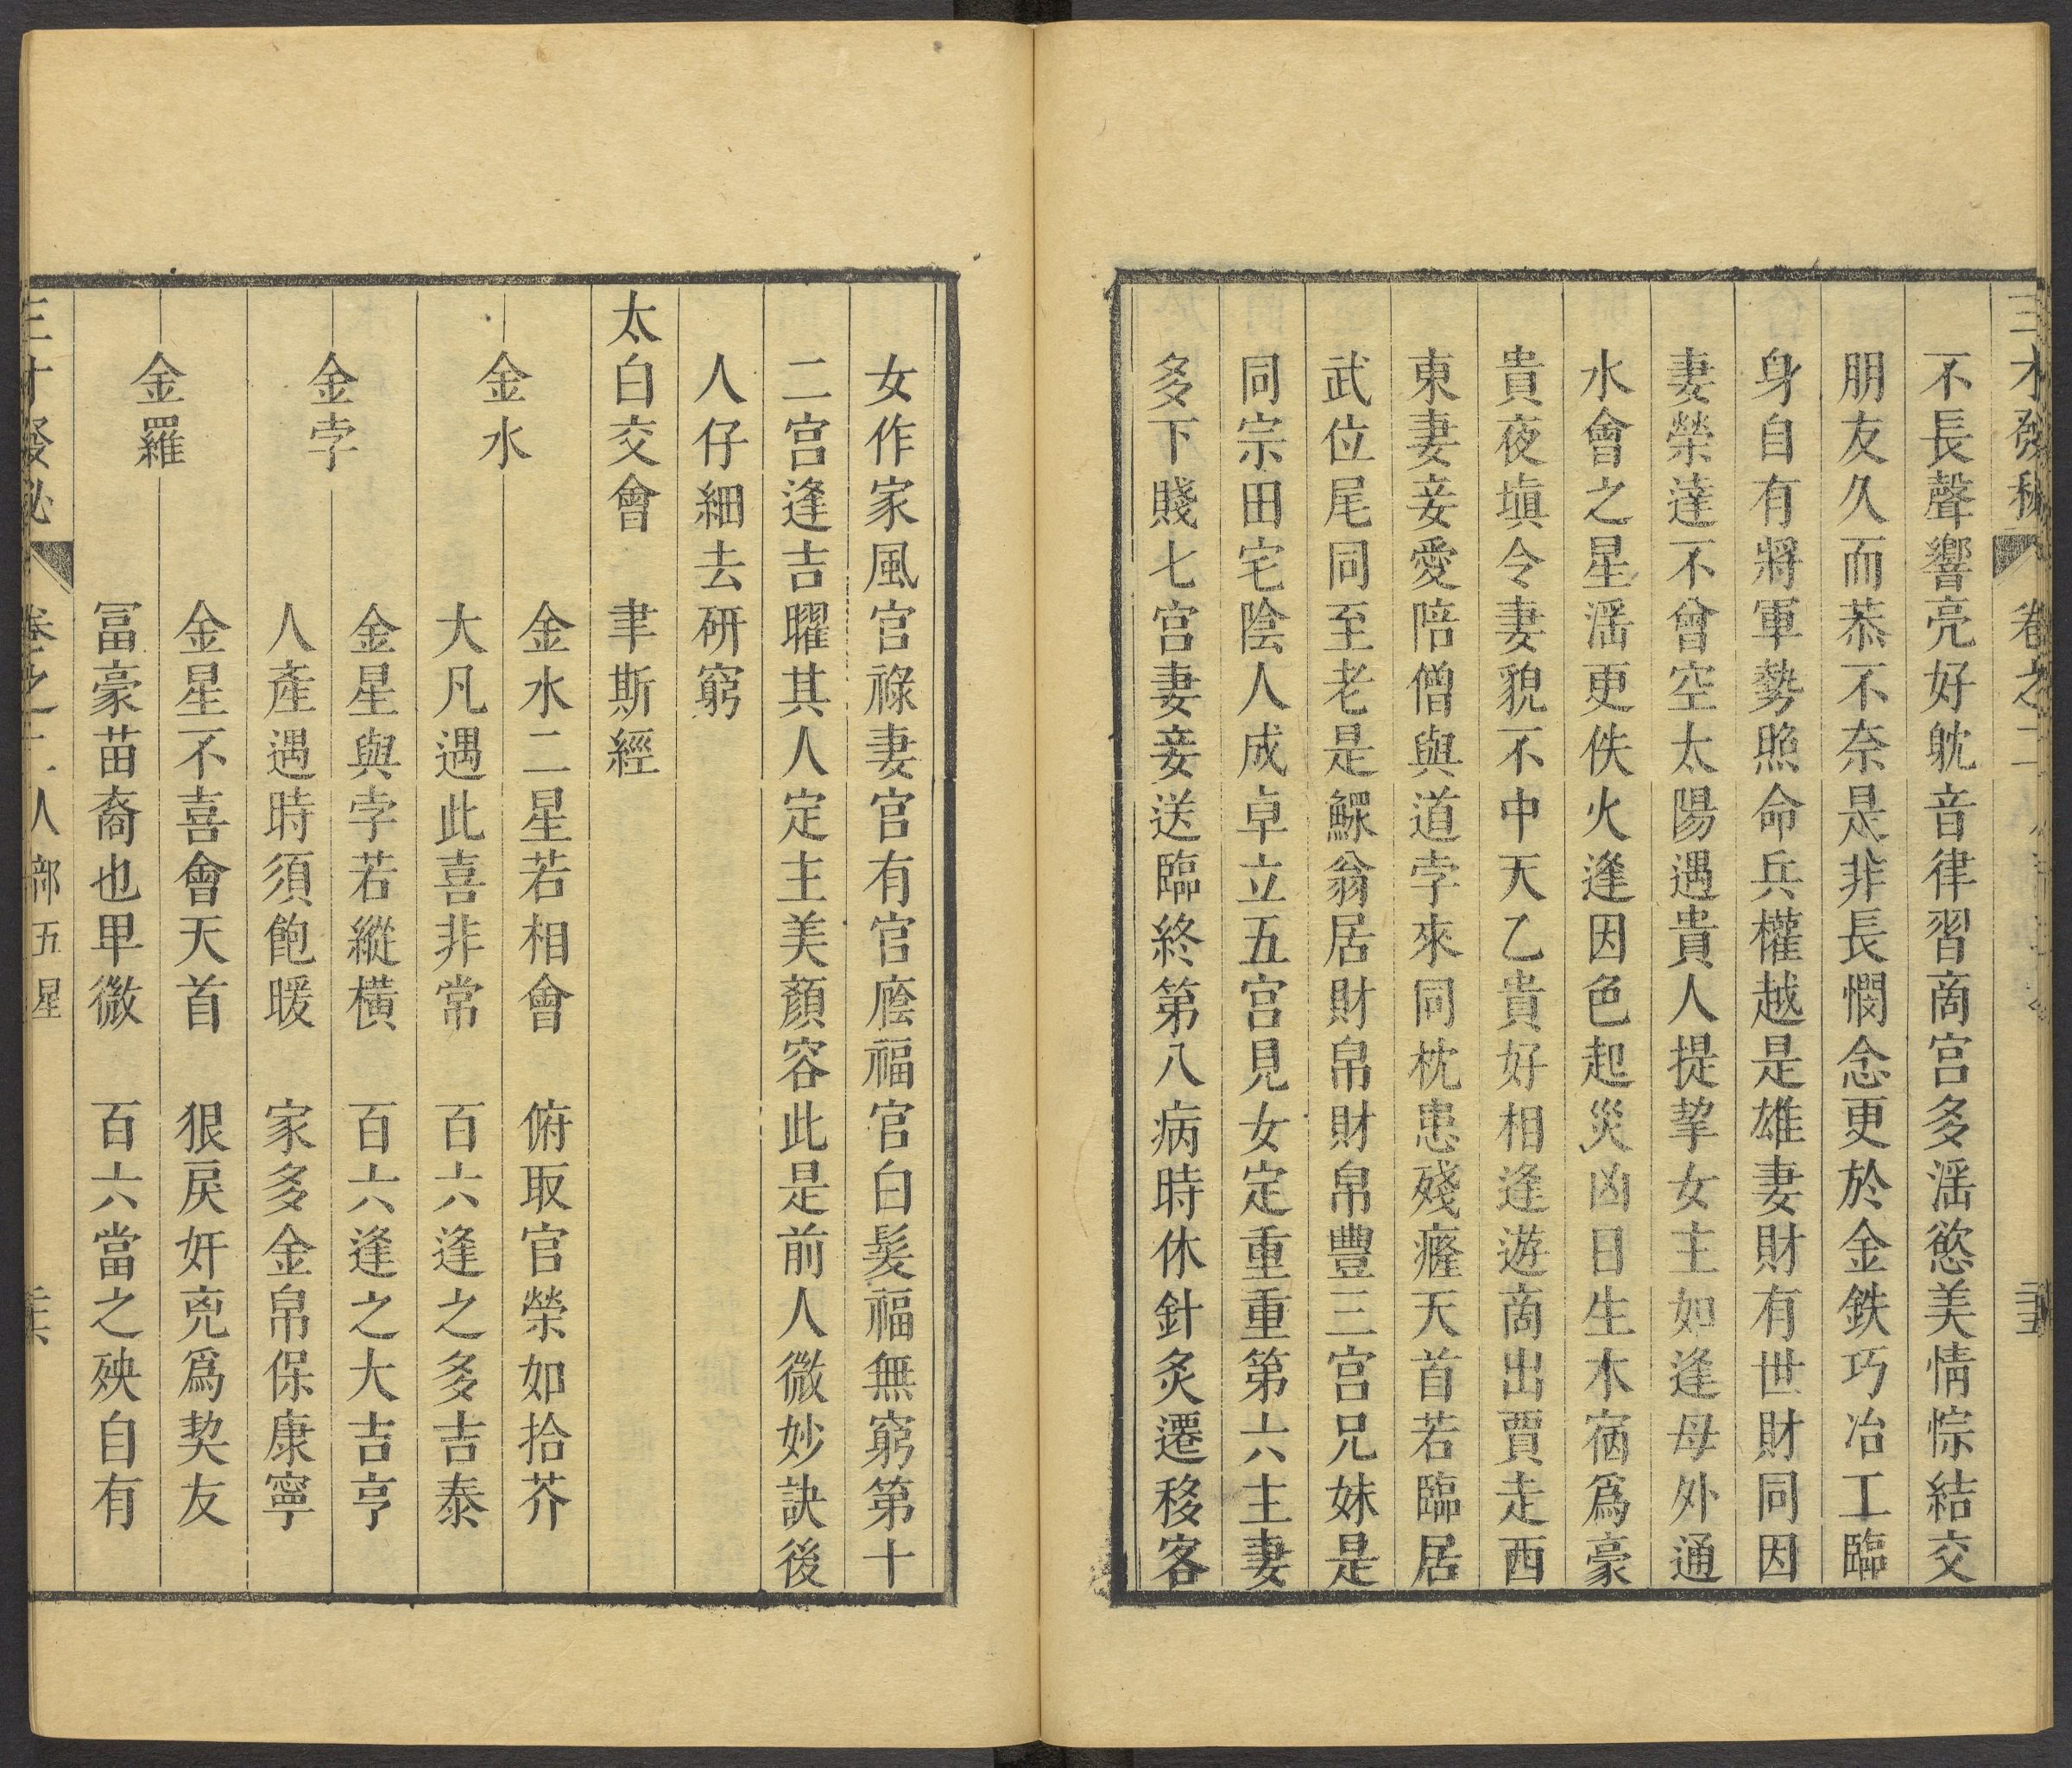 三才發秘 卷之二
不長聲響亮好躭音律習商宫多滛慾美情悰結交
朋友久而恭不奈是非長憫念更於金鉄巧冶工臨
身自有將軍勢照命兵權越是雄妻財有世財同因
妻榮達不曾空太陽遇貴人提挈女主如逢母外通
水會之星滛更佚火逢因色起災凶日生木宿爲豪
貴夜塡令妻貌不中天乙貴好相逢遊商出賈走西
東妻妾愛陪僧與道孛來同枕患殘癃天首若臨居
武位尾同至老是鰥翁居財帛財帛豐三宫兄妹是
同宗田宅陰人成卓立五宫見女定重重第六主妻
多下賤七宫妻妾送臨終第八病時休針炙遷移客
女作家風官祿妻官有官廕福官白髮福無窮第十
二宫逢吉曜其人定主美顏容此是前人微妙訣後
人仔細去研窮
太白交會 聿斯經
金水
金水二星若相會 俯取官榮如拾芥
大凡遇此喜非常 百六逢之多吉泰
金孛
金星與孛若縱橫 百六逢之大吉亨
人產遇時須飽暖 家多金帛保康寧
金羅
金星不喜會天首 狠戾奸兇爲契友
冨豪苗裔也甲微 百六當之殃自有
三才發秘 卷之二 人部五星